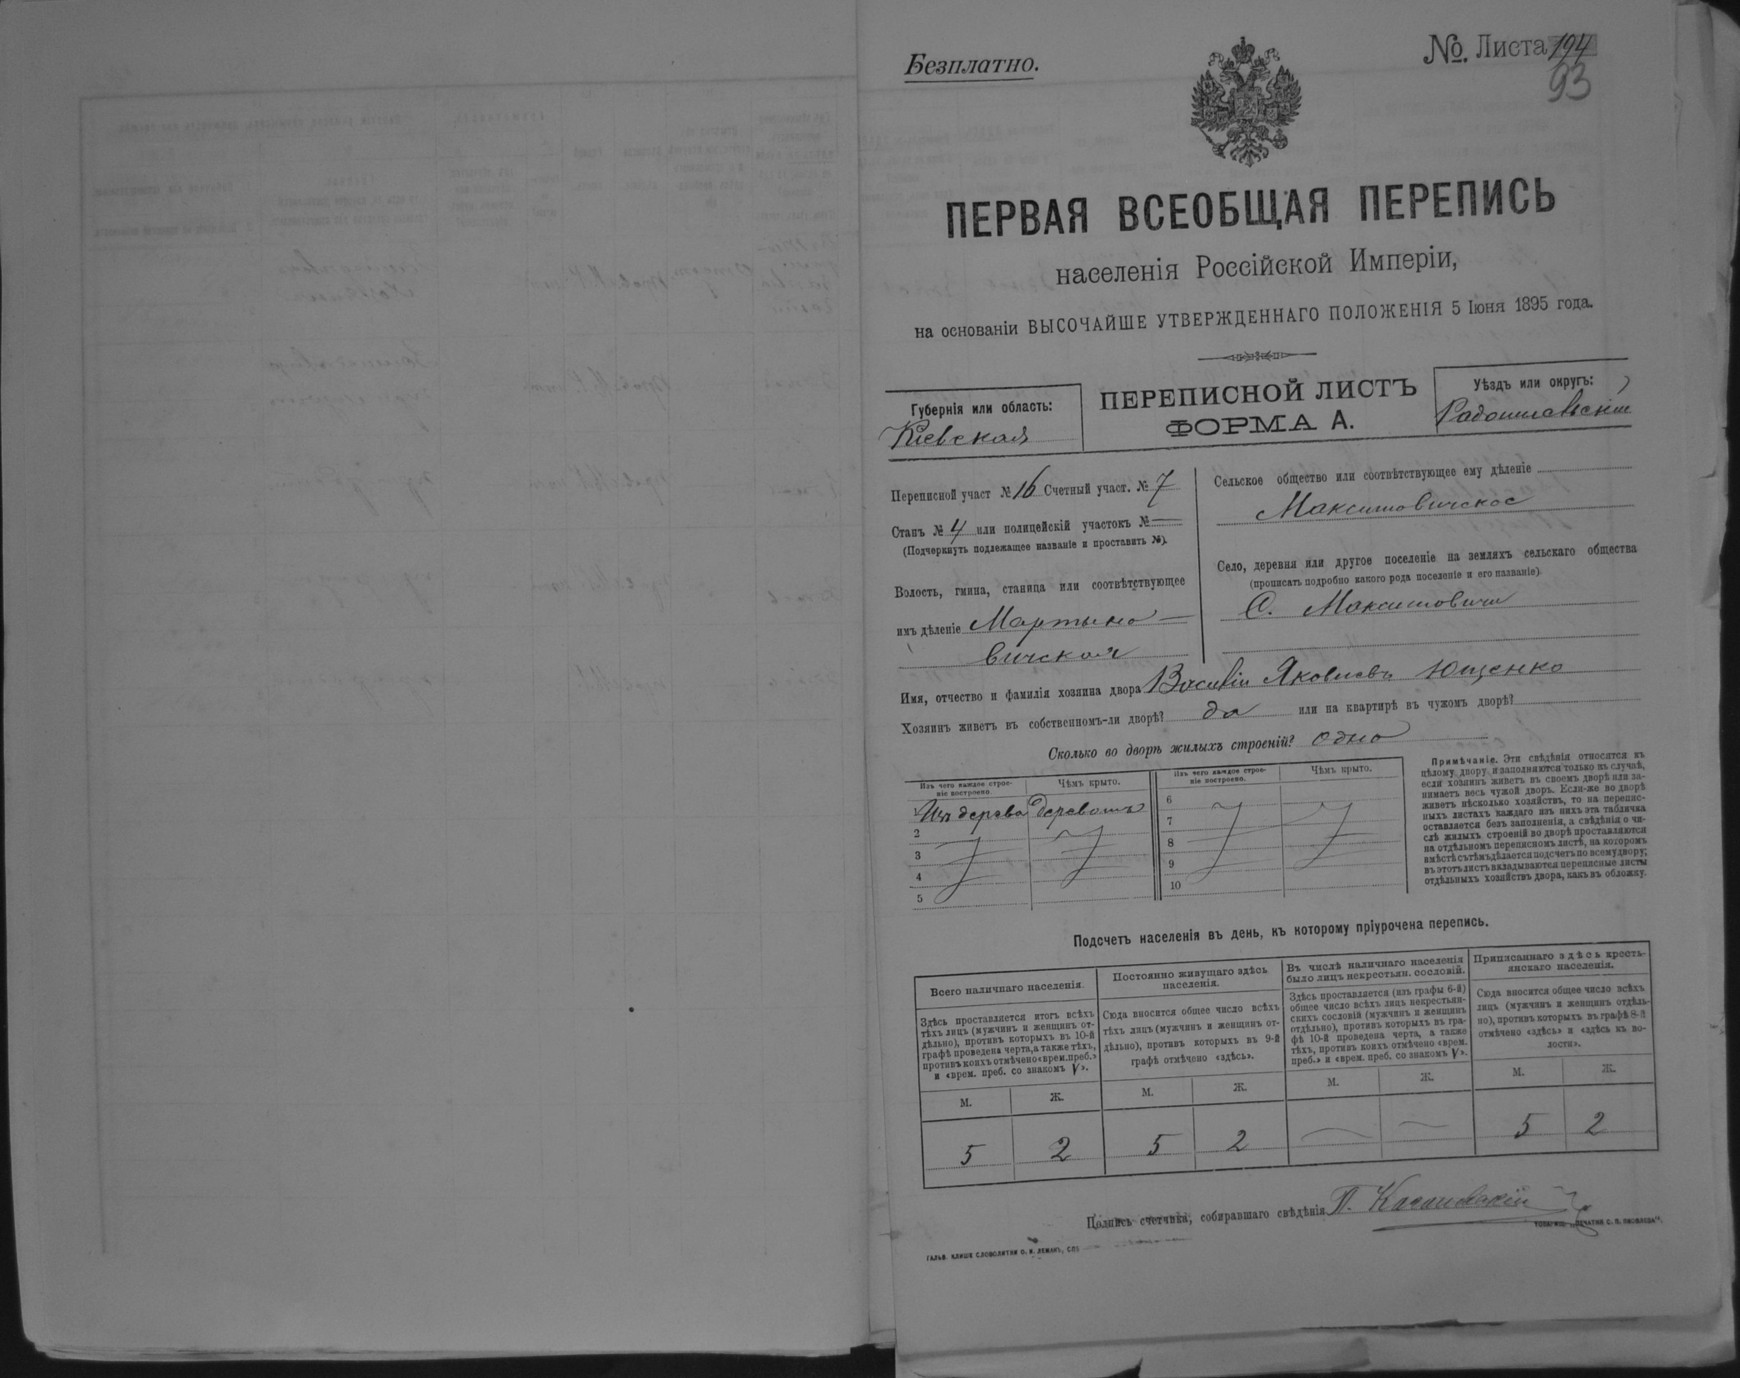 Безплатно.
№. Листа 194
93
ПЕРВАЯ ВСЕОБЩАЯ ПЕРЕПИСЬ
населенія Россійской Имперіи,
на основаніи ВЫСОЧАЙШЕ УТВЕРЖДЕННАГО ПОЛОЖЕНІЯ 5 Іюня 1895 года.
Губернія или область:
Кіевская
ПЕРЕПИСНОЙ ЛИСТЪ
ФОРМА А.
Уѣздъ или округъ:
Радомысльскій
Переписной участ № 16 Счетный участ. № 7
Станъ № 4 или полицейскій участокъ № —
(Подчеркнуть подлежащее названіе и проставить №).
Волость, гмина, станица или соотвѣтствующее
имъ дѣленіе Мартыно-
вичская
Сельское общество или соотвѣтствующее ему дѣленіе
Максимовичское
Село, деревня или другое поселеніе на земляхъ сельскаго общества
(прописать подробно какого рода поселеніе и его названіе)
С. Максимовичи
Имя, отчество и фамилія хозяина двора Василій Яковлевъ Ющенко
Хозяинъ живетъ въ собственномъ-ли дворѣ? да или на квартирѣ въ чужомъ дворѣ?
Сколько во дворѣ жилыхъ строеній? одно
Изъ чего каждое строе-
ніе построено.
Чѣмъ крыто.
Изъ чего каждое строе-
ніе построено.
Чѣмъ крыто.
1 Изъ дерева деревомъ
2
3
4
5
6
7
8
9
10
Примѣчаніе. Эти свѣдѣнія относятся къ
цѣлому двору и заполняются только въ случаѣ,
если хозяинъ живетъ въ своемъ дворѣ или за-
нимаетъ весь чужой дворъ. Если-же во дворѣ
живетъ нѣсколько хозяйствъ, то на перепис-
ныхъ листахъ каждаго изъ нихъ эта табличка
оставляется безъ заполненія, а свѣдѣнія о чи-
слѣ жилыхъ строеній во дворѣ проставляются
на отдѣльномъ переписномъ листѣ, на которомъ
вмѣстѣ съ тѣмъ дѣлается подсчетъ по всему двору;
въ этотъ листъ вкладываются переписные листы
отдѣльныхъ хозяйствъ двора, какъ въ обложку.
Подсчетъ населенія въ день, къ которому пріурочена перепись.
Всего наличнаго населенія.
Здѣсь проставляется итогъ всѣхъ
тѣхъ лицъ (мужчинъ и женщинъ от-
дѣльно), противъ которыхъ въ 10-й
графѣ проведена черта, а также тѣхъ,
противъ коихъ отмѣчено «врем. преб.»
и «врем. преб. со знакомъ V».
М. Ж.
5 2
Постоянно живущаго здѣсь
населенія.
Сюда вносится общее число всѣхъ
тѣхъ лицъ (мужчинъ и женщинъ от-
дѣльно), противъ которыхъ въ 9-й
графѣ отмѣчено «здѣсь».
М. Ж.
5 2
Въ числѣ наличнаго населенія
было лицъ некрестьян. сословій.
Здѣсь проставляется (изъ графы 6-й)
общее число всѣхъ лицъ некрестьян-
скихъ сословій (мужчинъ и женщинъ
отдѣльно), противъ которыхъ въ гра-
фѣ 10-й проведена черта, а также
тѣхъ, противъ коихъ отмѣчено «врем.
преб.» и «врем. преб. со знакомъ V».
М. Ж.
— —
Приписаннаго здѣсь кресть-
янскаго населенія.
Сюда вносится общее число всѣхъ
лицъ (мужчинъ и женщинъ отдѣль-
но), противъ которыхъ въ графѣ 8-й
отмѣчено «здѣсь» и «здѣсь къ во-
лости».
М. Ж.
5 2
Подпись счетчика, собиравшаго свѣдѣнія П.
ГАЛЬВ. КЛИШЕ СЛОВОЛИТНИ О. И. ЛЕМАНЪ, СПБ
ПЕЧАТНЯ С. П. ЯКОВЛЕВА".